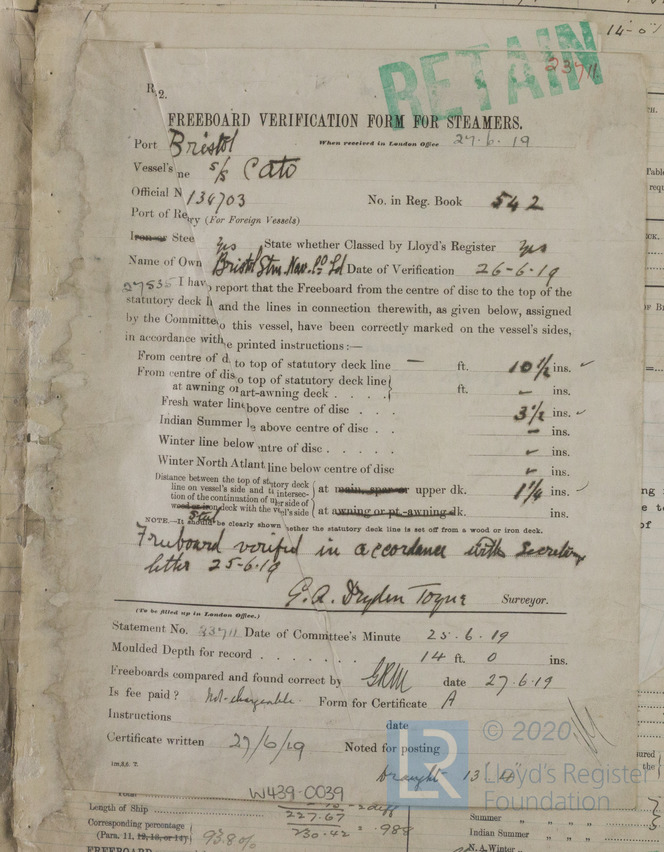 14-0
RETAIN
23711
R.2.
FREEBOARD VERIFICATION FORM FOR STEAMERS.
Port Bristol When received in London Office 27.6.19
Vessel's ne s/s Cato
Official N 134703 No. in Reg. Book 542
Port of Re ry (For Foreign Vessels)
Iron or Stee Yes State whether Classed by Lloyd's Register Yes
Name of Own Bristol Stm. Nav. Co Ld Date of Verification 26-6-19
I hav report that the Freeboard from the centre of disc to the top of the
statutory deck l and the lines in connection therewith, as given below, assigned
by the Committe o this vessel, have been correctly marked on the vessel's sides,
in accordance with e printed instructions:—
From centre of d to top of statutory deck line — ft. 10 1/2 ins.
From centre of dis o top of statutory deck line
at awning or art-awning deck . . . . ft. - ins.
Fresh water line bove centre of disc . . . 3 1/2 ins.
Indian Summer l e above centre of disc . . - ins.
Winter line below entre of disc . . . . . ins.
Winter North Atlant line below centre of disc ins.
Distance between the top of st tory deck
line on vessel's side and t intersec-
tion of the continuation of u er side of
wood or iron deck with the v el's side
Steel
at main, spar or upper dk. 1 1/4 ins.
at awning or pt.-awning dk. ins.
NOTE.—It should be clearly shown ether the statutory deck line is set off from a wood or iron deck.
Freeboard verified in accordance with Secretary
letter 25-6-19
G. A. Dryden Toyne Surveyor.
(To be filled up in London Office.)
Statement No. 23711 Date of Committee's Minute 25.6.19
Moulded Depth for record . . . . . . . 14 ft. 0 ins.
Freeboards compared and found correct by GRM date 27.6.19
Is fee paid? Not chargeable. Form for Certificate A
Instructions date
Certificate written 27/6/19 Noted for posting
draught 13
W439-0039
© 2020
Lloyd's Register
Foundation
Length of Ship
227.67
230.42 = .988
Corresponding percentage
(Para. 11, 12, 13, or 14)
93.8%
Summer „ „ „
Indian Summer „ „
N.A. Winter „
FREEBOARD